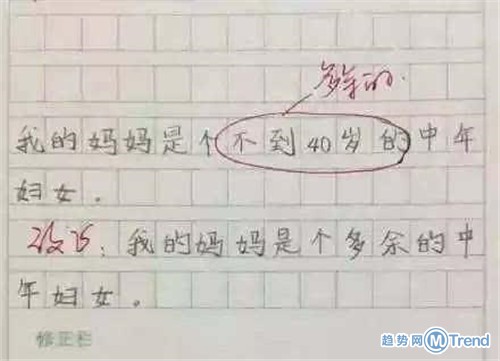 多余的.
我的妈妈是个不到40岁的中年
妇女.
改巧：我的妈妈是个多余的中
年妇女。
修正栏
趋势网 MTrend